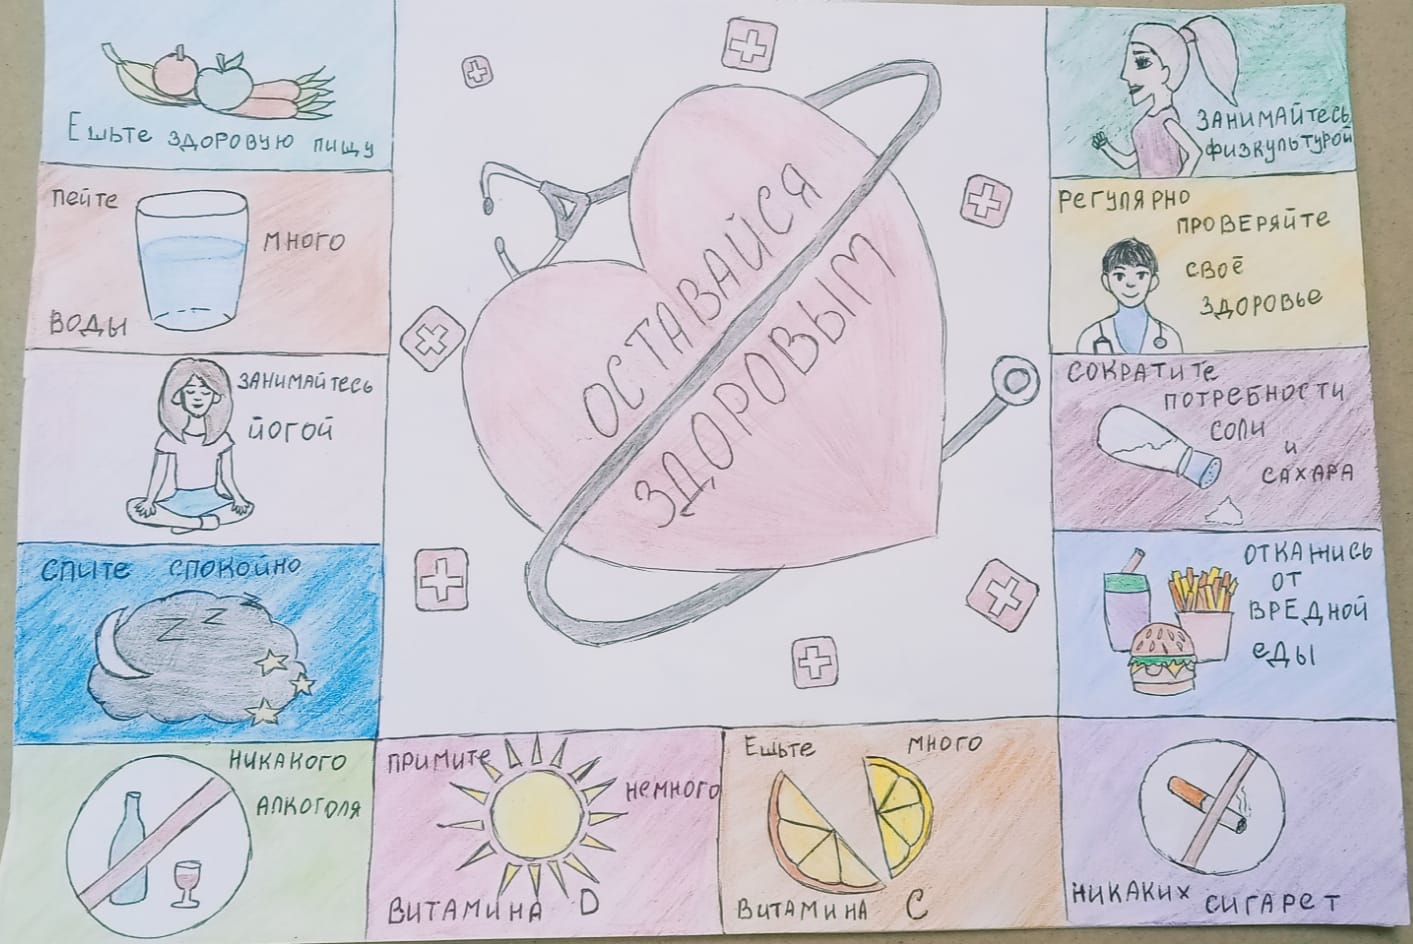 Ешьте здоровую пищу
Пейте
много
воды
Занимайтесь
йогой
Спите спокойно
Z Z
Никакого
алкоголя
Примите
немного
витамина D
Ешьте много
витамина C
Никаких сигарет
Оставайся
здоровым
Занимайтесь
физкультурой
Регулярно
проверяйте
своё
здоровье
Сократите
потребности
соли
и
сахара
Откажись
от
вредной
еды